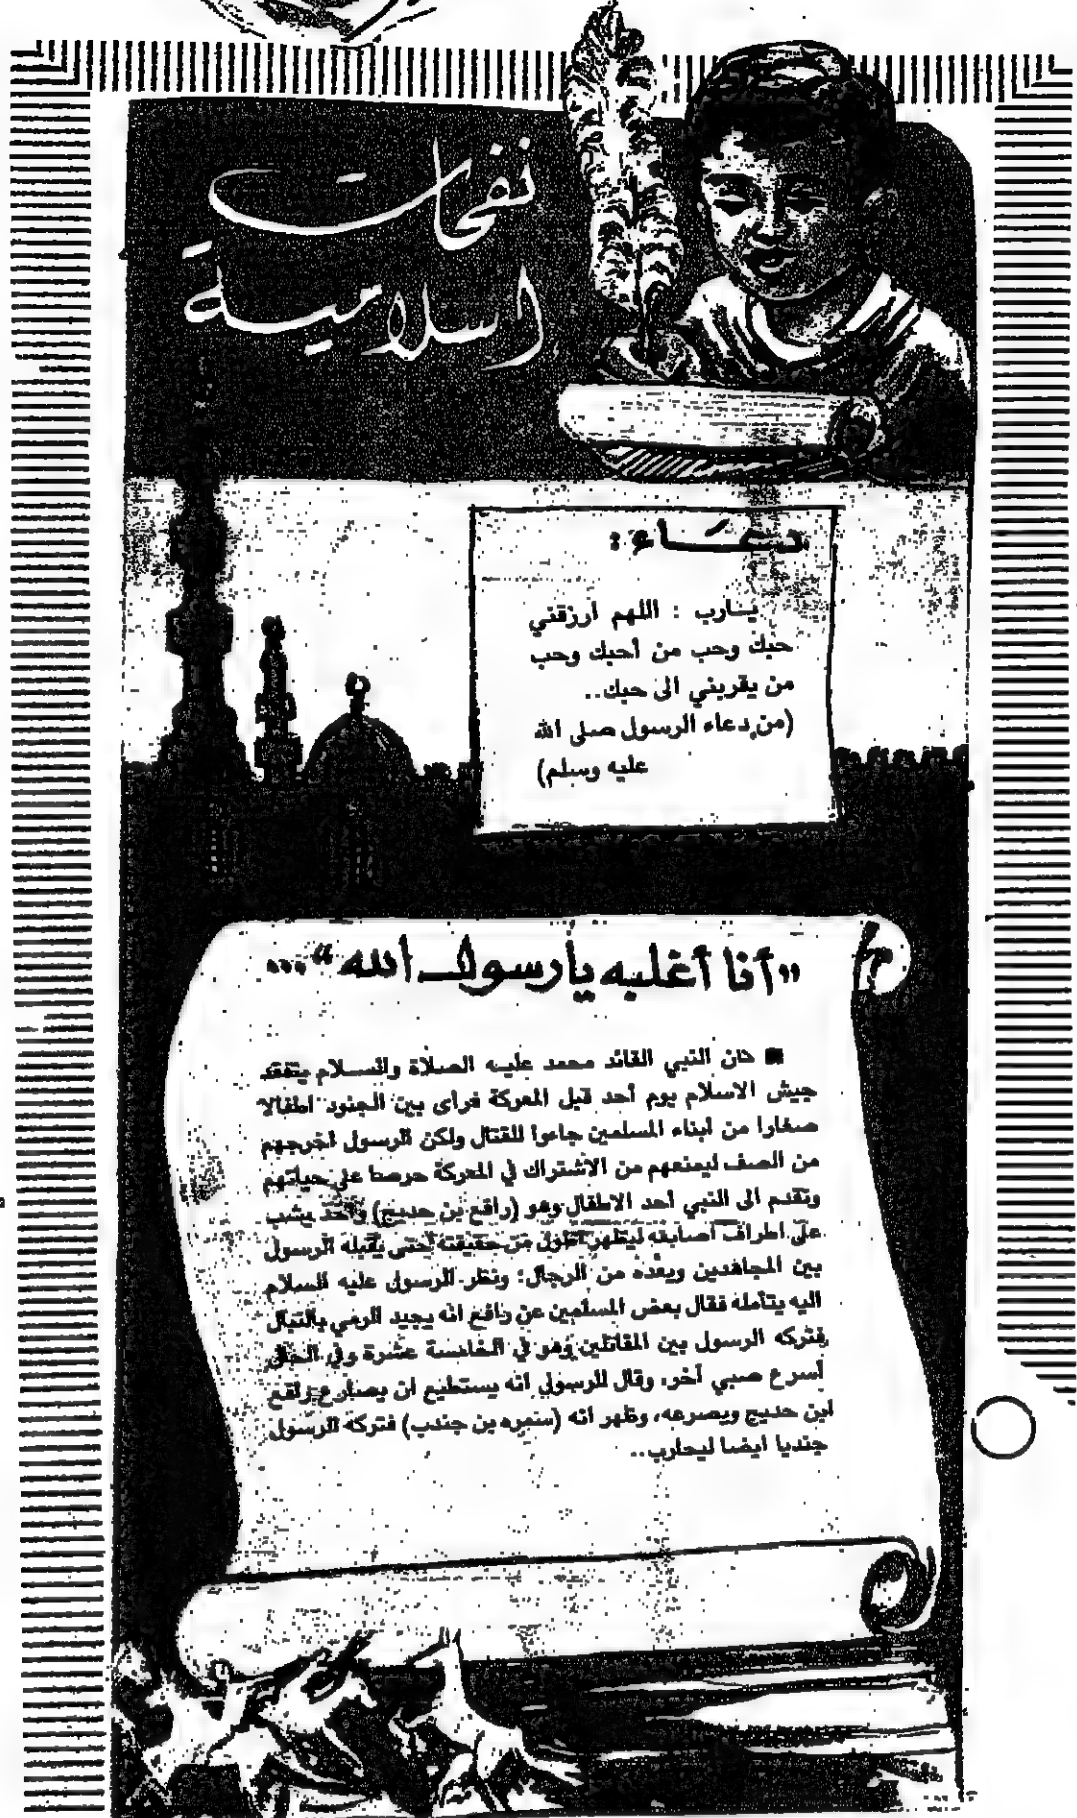 نفحات
اسلامية
دعـــاء :
يـارب : اللهم ارزقني
حبك وحب من أحبك وحب
من يقربني الى حبك..
(من دعاء الرسول صلى الله
عليه وسلم)
"أنا أغلبه يا رسول الله"...
كان النبي القائد محمد عليه الصلاة والسلام يتفقد
جيش الاسلام يوم أحد قبل المعركة فراى بين الجنود اطفالا
صغارا من ابناء المسلمين جاءوا للقتال ولكن الرسول اخرجهم
من الصف ليمنعهم من الاشتراك في المعركة حرصا على حياتهم
وتقدم الى النبي أحد الاطفال وهو (رافع بن حديج) وأخذ يشب
على اطراف اصابعه ليظهر اطول من حقيقته حتى يقبله الرسول
بين المجاهدين ويعده من الرجال: ونظر الرسول عليه السلام
اليه يتأمله فقال بعض المسلمين عن رافع انه يجيد الرمي بالنبال
فتركه الرسول بين المقاتلين وهو في الخامسة عشرة وفي الحال
أسرع صبي آخر، وقال للرسول انه يستطيع ان يصارع رافع
ابن حديج ويصرعه، وظهر انه (سمره بن جندب) فتركه الرسول
جنديا ايضا ليحارب..